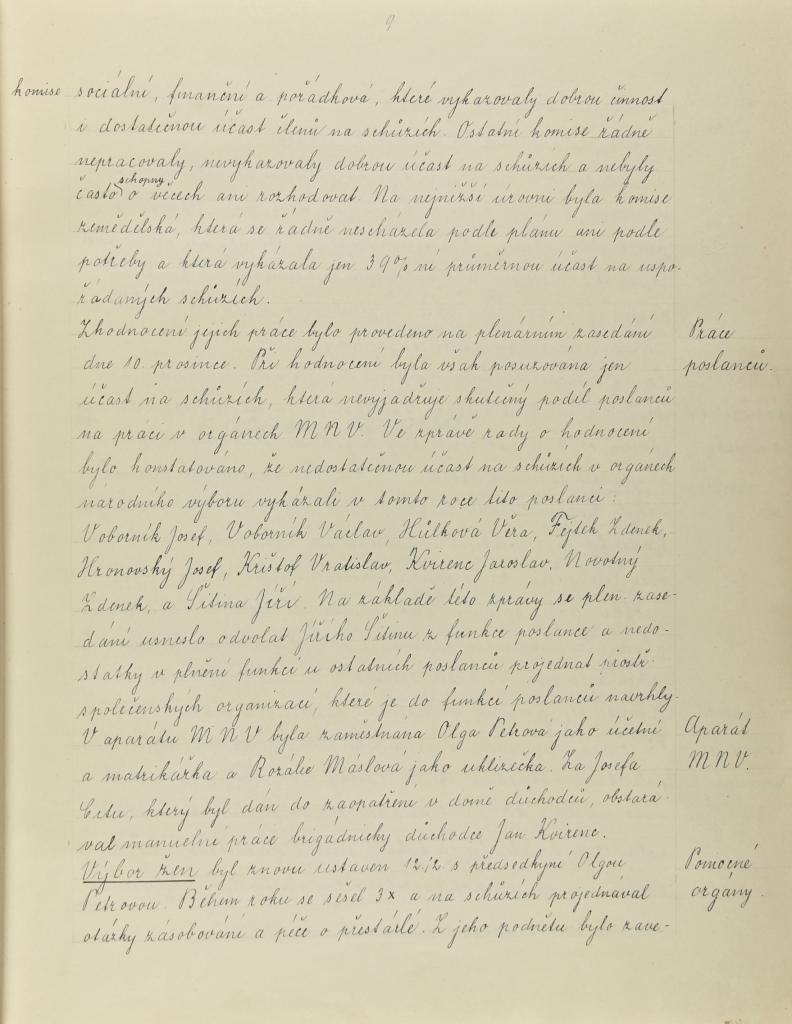 9
komise sociální, finanční a pořádková, které vykazovaly dobrou činnost
i dostatečnou účast členů na schůzích. Ostatní komise řádně
nepracovaly, nevykazovaly dobrou účast na schůzích a nebyly
často schopny o věcech ani rozhodovat. Na nejnižší úrovni byla komise
zemědělská, která se řádně nescházela podle plánu ani podle
potřeby a která vykázala jen 39%ní průměrnou účast na uspo-
řádaných schůzích.
Zhodnocení jejich práce bylo provedeno na plenárním zasedání
Práce
dne 10. prosince. Při hodnocení byla však posuzována jen
poslanců.
účast na schůzích, která nevyjadřuje skutečný podíl poslanců
na práci v orgánech MNV. Ve zprávě rady o hodnocení
bylo konstatováno, že nedostatečnou účast na schůzích v orgánech
národního výboru vykázali v tomto roce tito poslanci:
Voborník Josef, Voborník Václav, Hůlková Věra, Fejtek Zdenek,
Hronovský Josef, Krištof Vratislav, Kvirenc Jaroslav, Novotný
Zdenek, a Šitina Jiří. Na základě této zprávy se plen. zase-
dání usneslo odvolat Jiřího Šitinu z funkce poslance a nedo-
statky v plnění funkcí u ostatních poslanců projednat prostř.
společenských organizací, které je do funkcí poslanců navrhly.
V aparátu MNV byla zaměstnána Olga Petrová jako účetní
Aparát
a matrikářka a Rozálie Máslová jako uklizečka. Za Josefa
MNV.
Citu, který byl dán do zaopatření v domě důchodců, obstará-
val manuelní práce brigádnicky důchodce Jan Kvirenc.
Výbor žen byl znovu ustaven 12./2. s předsedkyní Olgou
Pomocné
Petrovou. Během roku se sešel 3x a na schůzích projednával
orgány.
otázky zásobování a péče o přestárlé. Z jeho podnětu bylo zave-